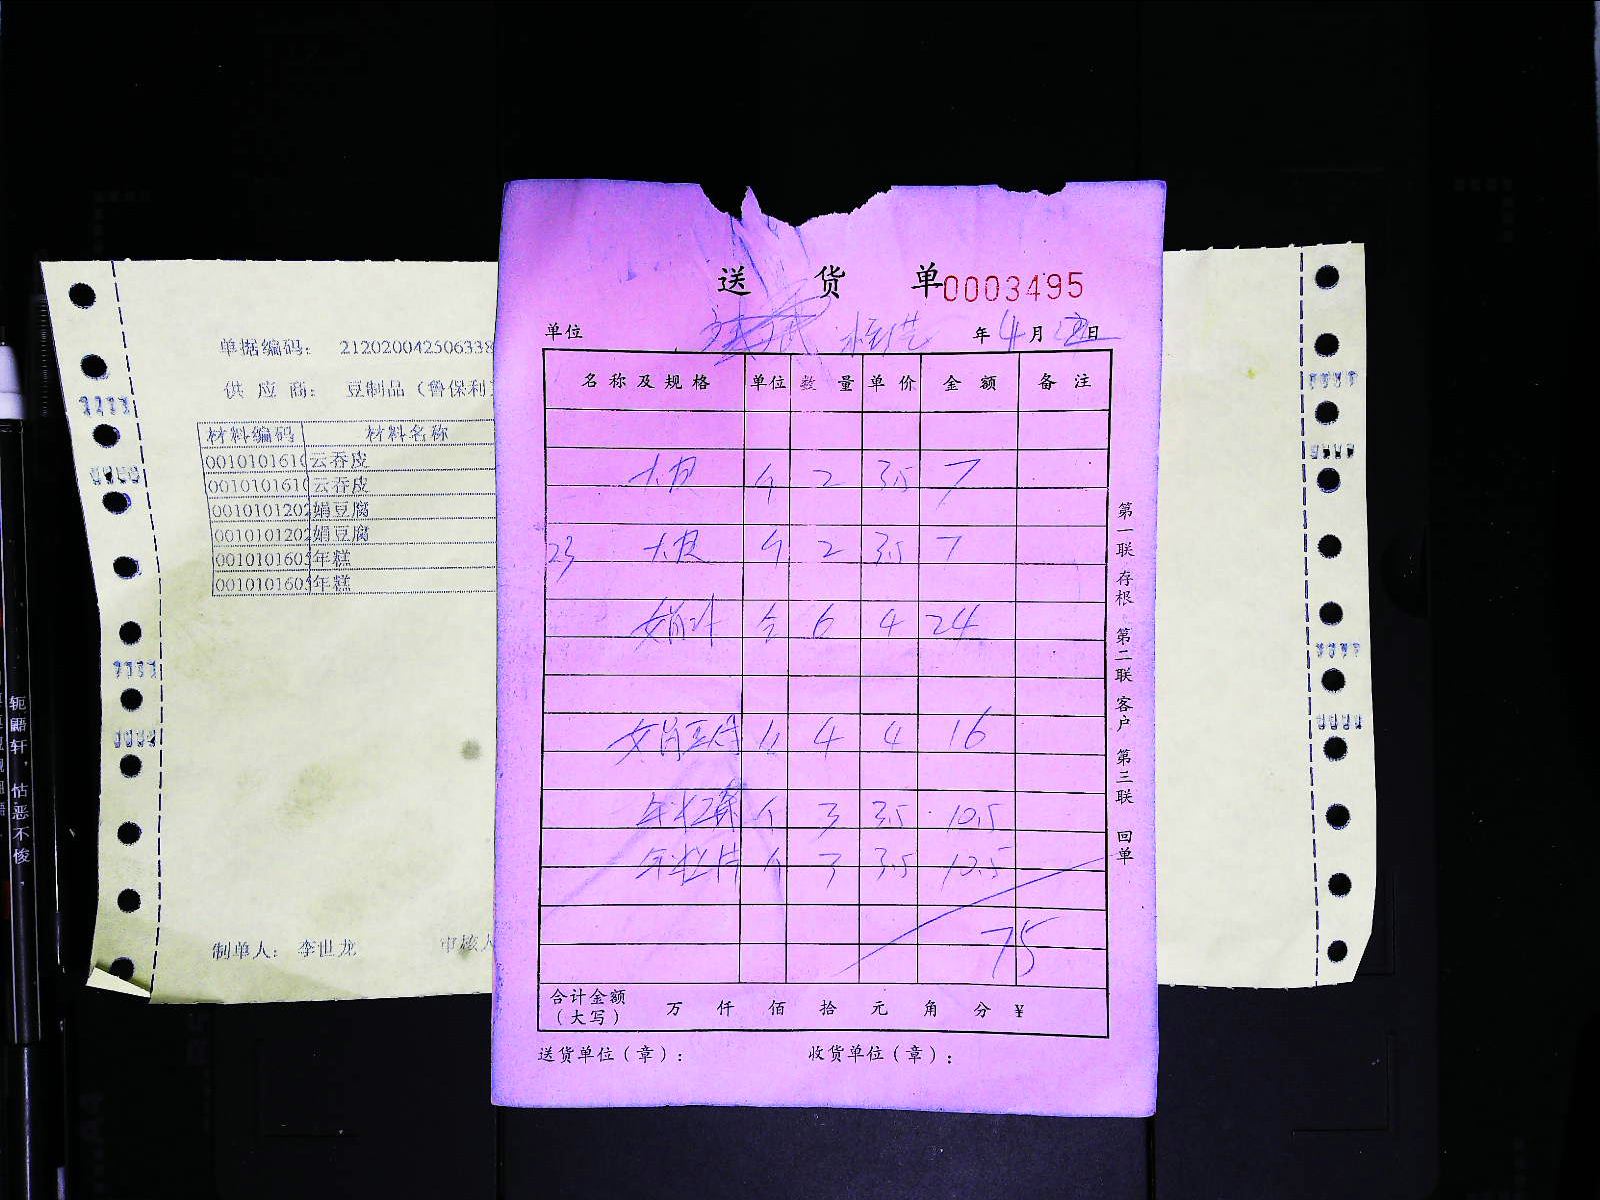 送 货 单 0003495
单位 年 4 月 日
名称及规格 单位 数量 单价 金额 备注
大皮 个 2 3.5 7
23 大皮 个 2 3.5 7
6 4 24
4 4 16
年糕条 个 3 3.5 10.5
年糕片 个 3 3.5 10.5
75
合计金额
（大写） 万 仟 佰 拾 元 角 分 ¥
送货单位（章）： 收货单位（章）：
第一联 存根 第二联 客户 第三联 回单
单据编码： 212020042506338
供 应 商： 豆制品（鲁保利
材料编码 材料名称
001010161 云吞皮
001010161 云吞皮
001010120 娟豆腐
001010120 娟豆腐
001010160 年糕
001010160 年糕
制单人： 李世龙 审核人
轭 龉 轩 ， 怙 恶 不 悛